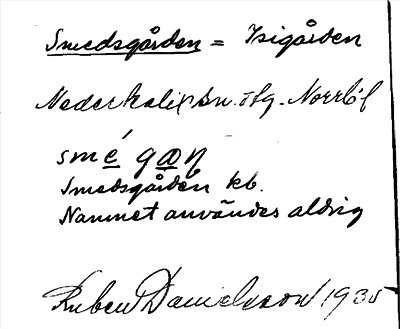 Smedsgården = Isigården
Nederkalix sn. Norrb.l
smé gaņ
Smedsgården kb.
Namnet användes aldrig
Ruben Danielsson 1935